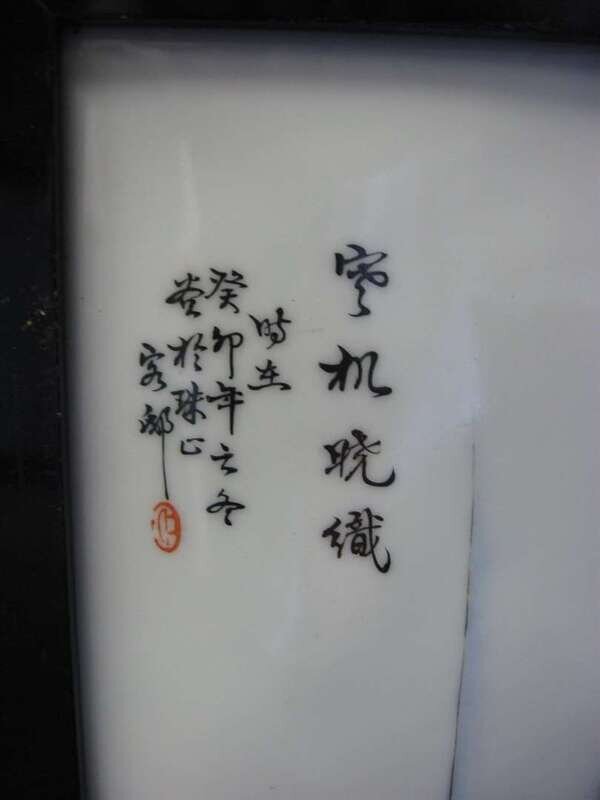 寒机晓織
时在
癸卯年之冬
於珠山
客邸